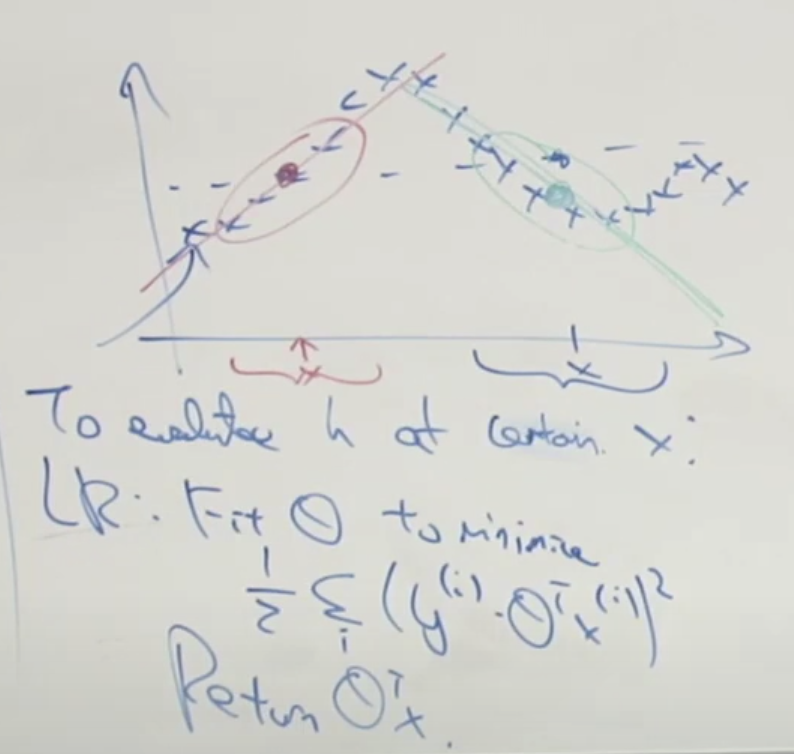 x
x
To evaluate h at certain x:
LR: Fit θ to minimize
1/2 Σ_i (y^(i) - θ^T x^(i))^2
Return θ^T x.